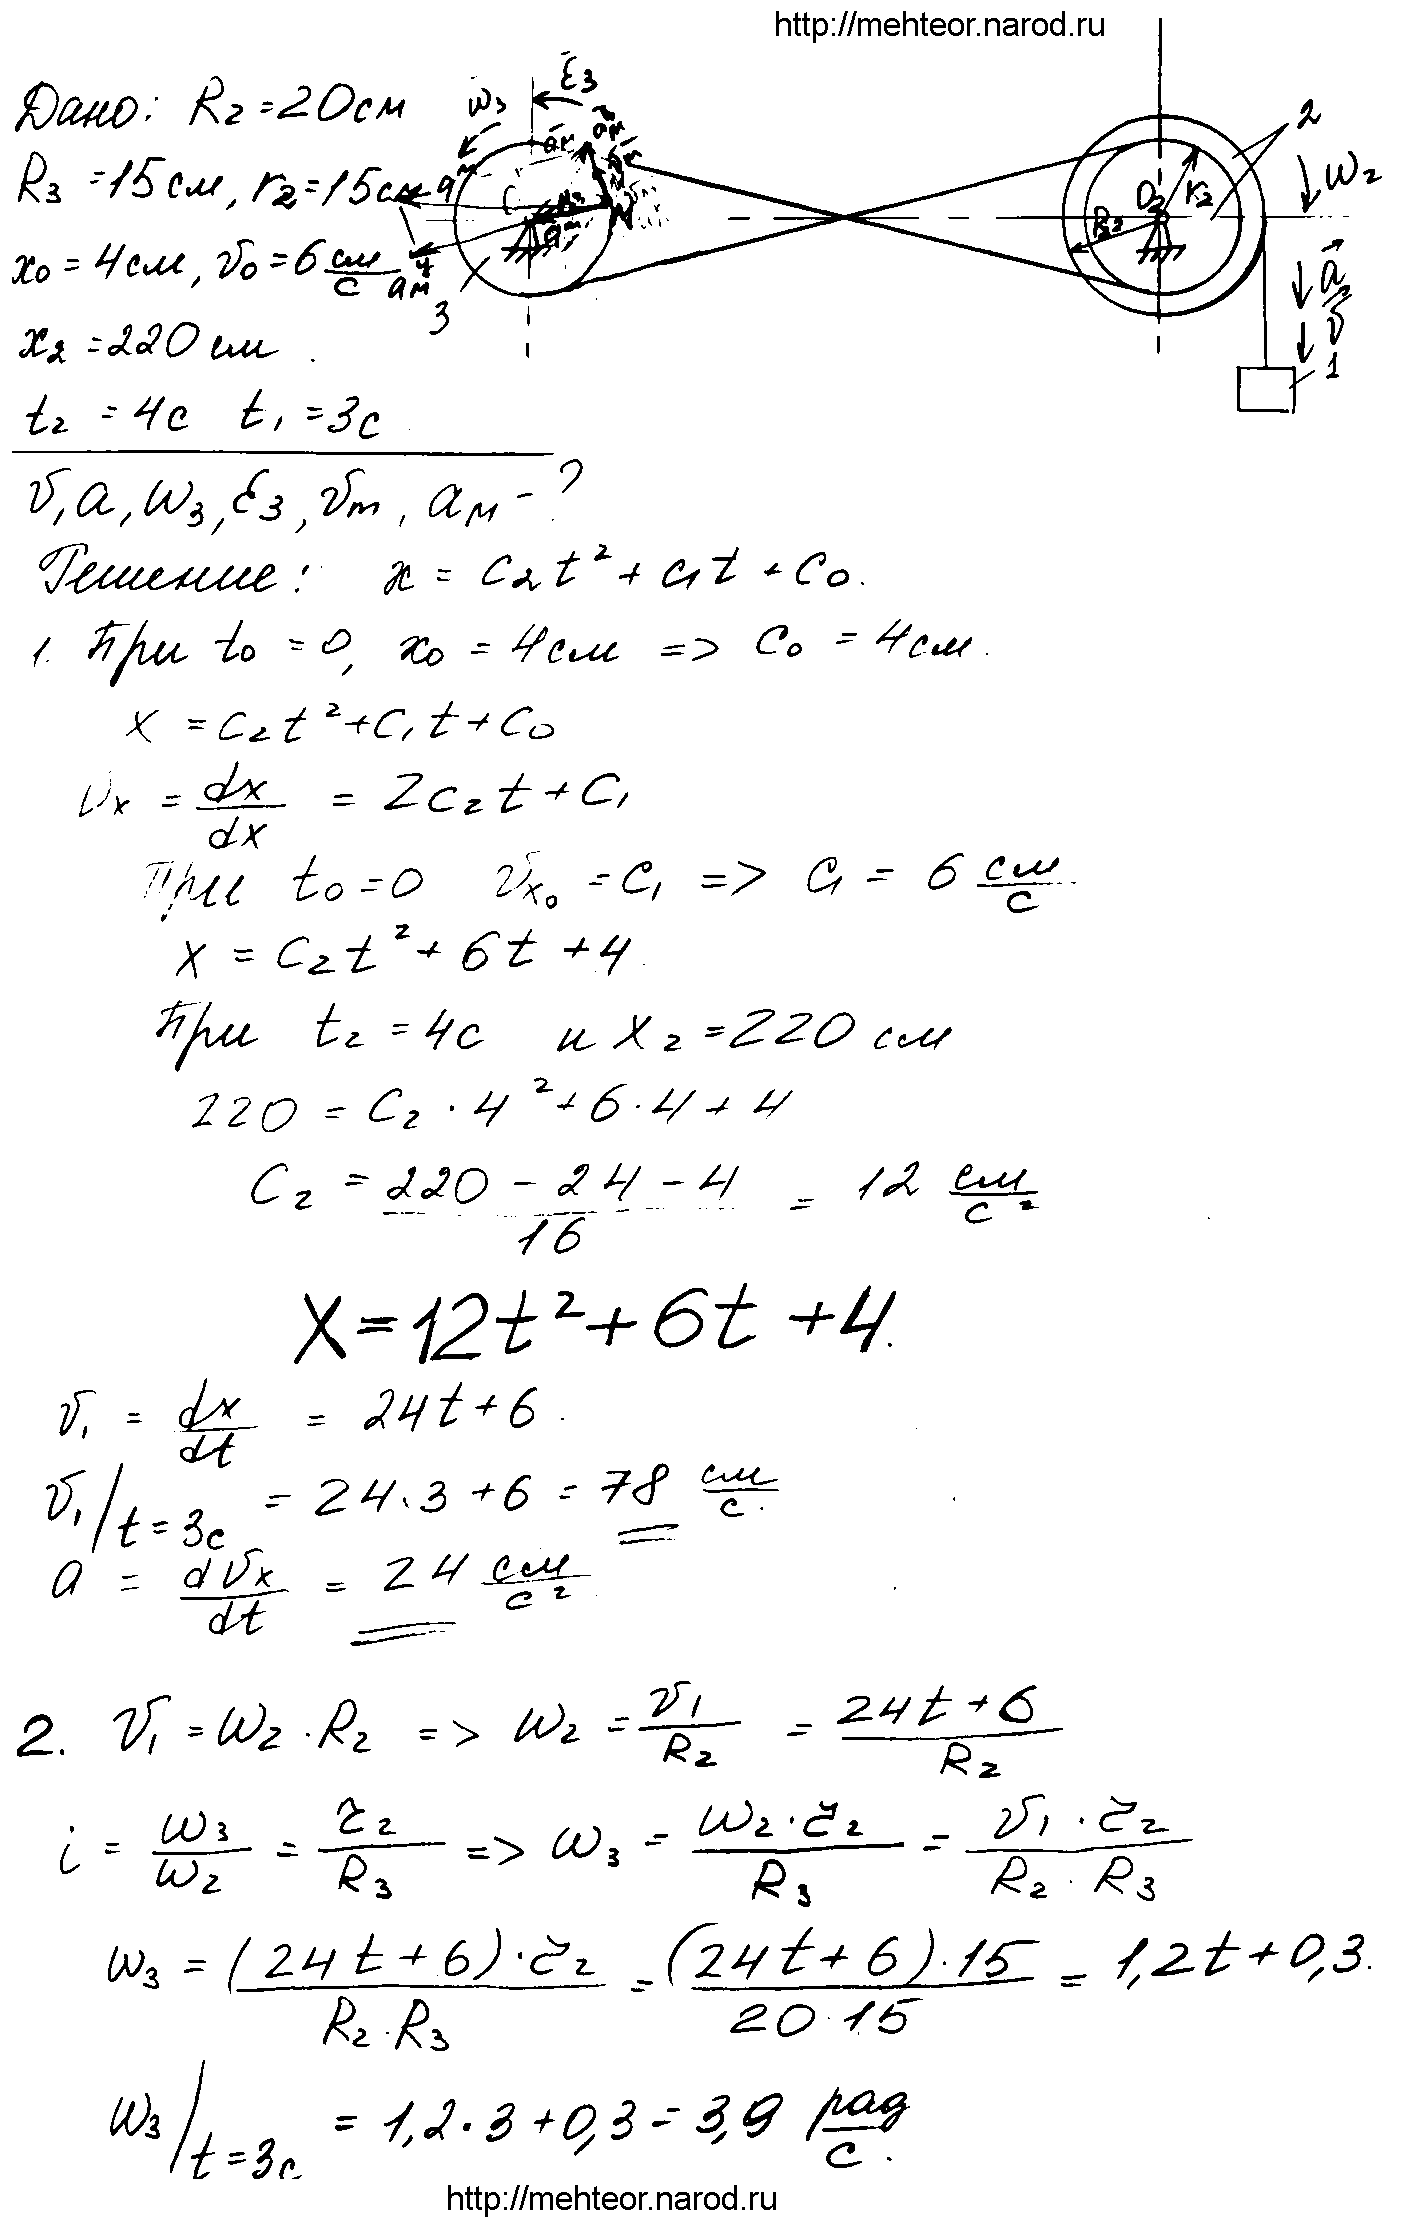 http://mehteor.narod.ru
Дано: R₂ = 20 см
R₃ = 15 см, r₂ = 15 см
x₀ = 4 см, v₀ = 6 см/с
x₂ = 220 см.
t₂ = 4 с t₁ = 3 с
v, a, ω₃, ε₃, vₘ, aₘ - ?
ω₃
ε₃
3
O₂
r₂
R₂
2
ω₂
a
v
1
Решение: x = c₂t² + c₁t + c₀.
1. При t₀ = 0, x₀ = 4 см => c₀ = 4 см.
x = c₂t² + c₁t + c₀
vₓ = dx/dx = 2c₂t + c₁
При t₀ = 0 vₓ₀ = c₁ => c₁ = 6 см/с
x = c₂t² + 6t + 4.
При t₂ = 4с и x₂ = 220 см
220 = c₂ · 4² + 6 · 4 + 4
c₂ = (220 - 24 - 4)/16 = 12 см/с²
x = 12t² + 6t + 4.
v₁ = dx/dt = 24t + 6.
v₁/t=3с = 24 · 3 + 6 = 78 см/с.
a = dvₓ/dt = 24 см/с²
2. v₁ = ω₂ · R₂ => ω₂ = v₁/R₂ = (24t + 6)/R₂
i = ω₃/ω₂ = r₂/R₃ => ω₃ = ω₂ · r₂/R₃ = v₁ · r₂/R₂ · R₃
ω₃ = (24t + 6) · r₂/R₂ · R₃ = (24t + 6) · 15/20 · 15 = 1,2t + 0,3.
ω₃/t=3с = 1,2 · 3 + 0,3 = 3,9 рад/с.
http://mehteor.narod.ru